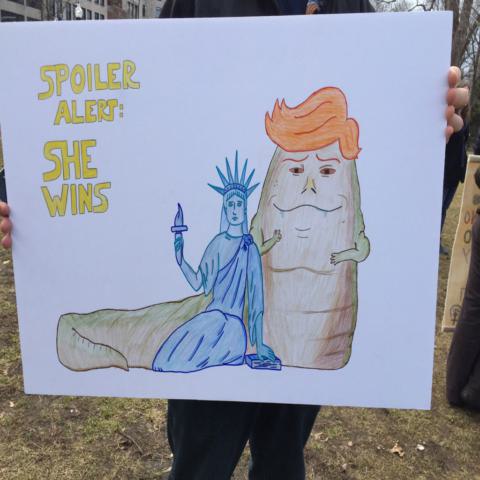 SPOILER
ALERT:
SHE
WINS